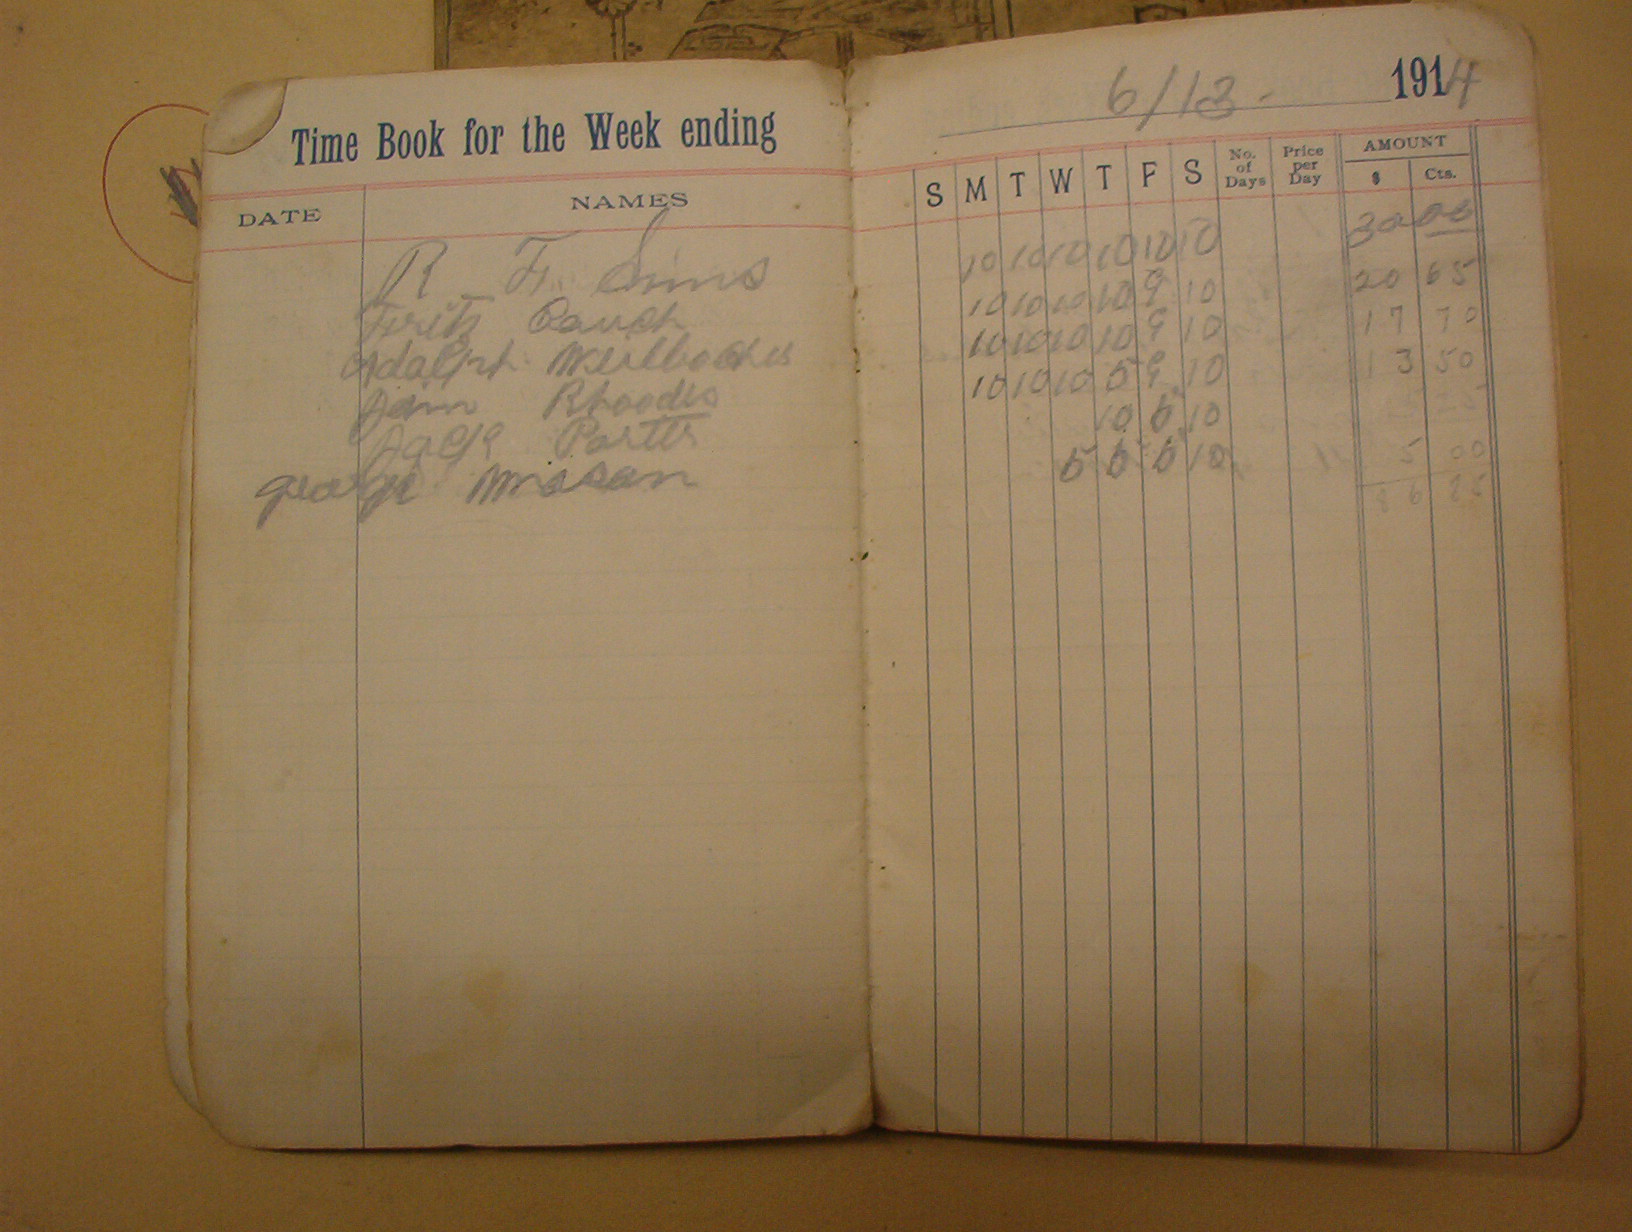 Time Book for the Week ending 6/13 - 1914
DATE NAMES S M T W T F S No. of Days Price per Day AMOUNT $ Cts.
R. F. Sims 10 10 10 10 10 10 30 00
Fritz Rauch 10 10 10 10 9 10 20 65
Adolph 10 10 10 10 9 10 17 70
Jim Rhoades 10 10 10 5 9 10 13 50
Jack Porter 10 5 10
George Mason 5 5 5 10 5 00
86 85